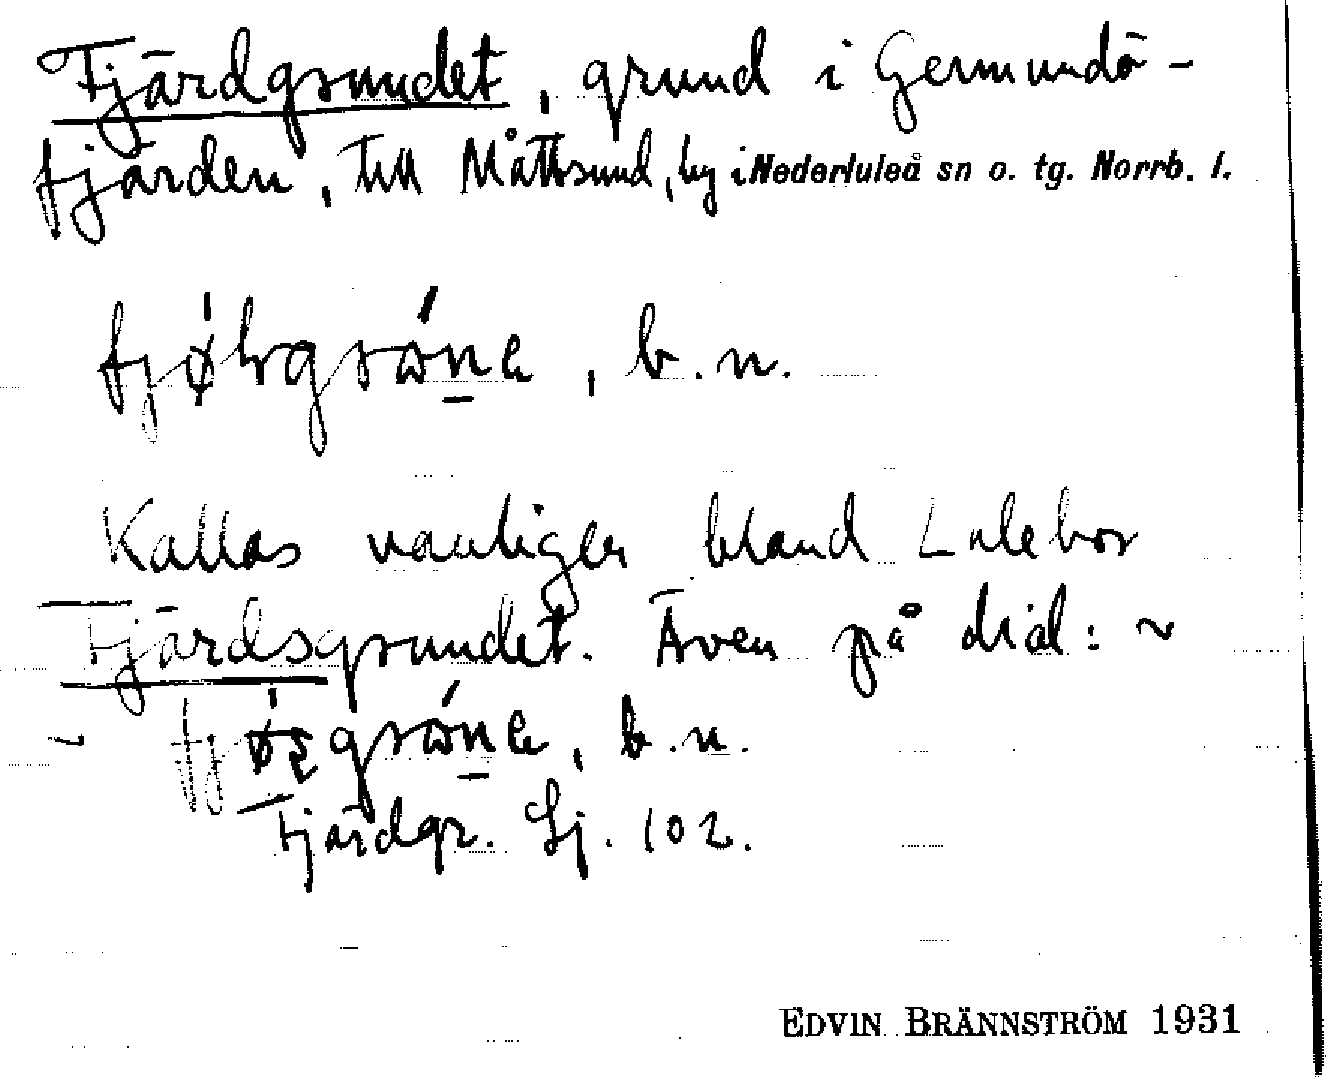 Fjärdgrundet, grund i Germundö-
fjärden, till Måttsund, by i Nederluleå sn o. tg. Norrb. l.
b.n.
Kallas vanligen bland Lulebor
Fjärdsgrundet. Även på dial: ~
b.n.
Fjärdgr. Sj. 102.
EDVIN BRÄNNSTRÖM 1931